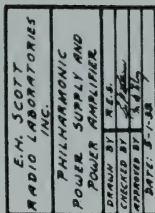 E.H. SCOTT
RADIO LABORATORIES
INC.
PHILHARMONIC
POWER SUPPLY AND
POWER AMPLIFIER
DRAWN BY R.E.S.
CHECKED BY
APPROVED BY
DATE: 5-1-38